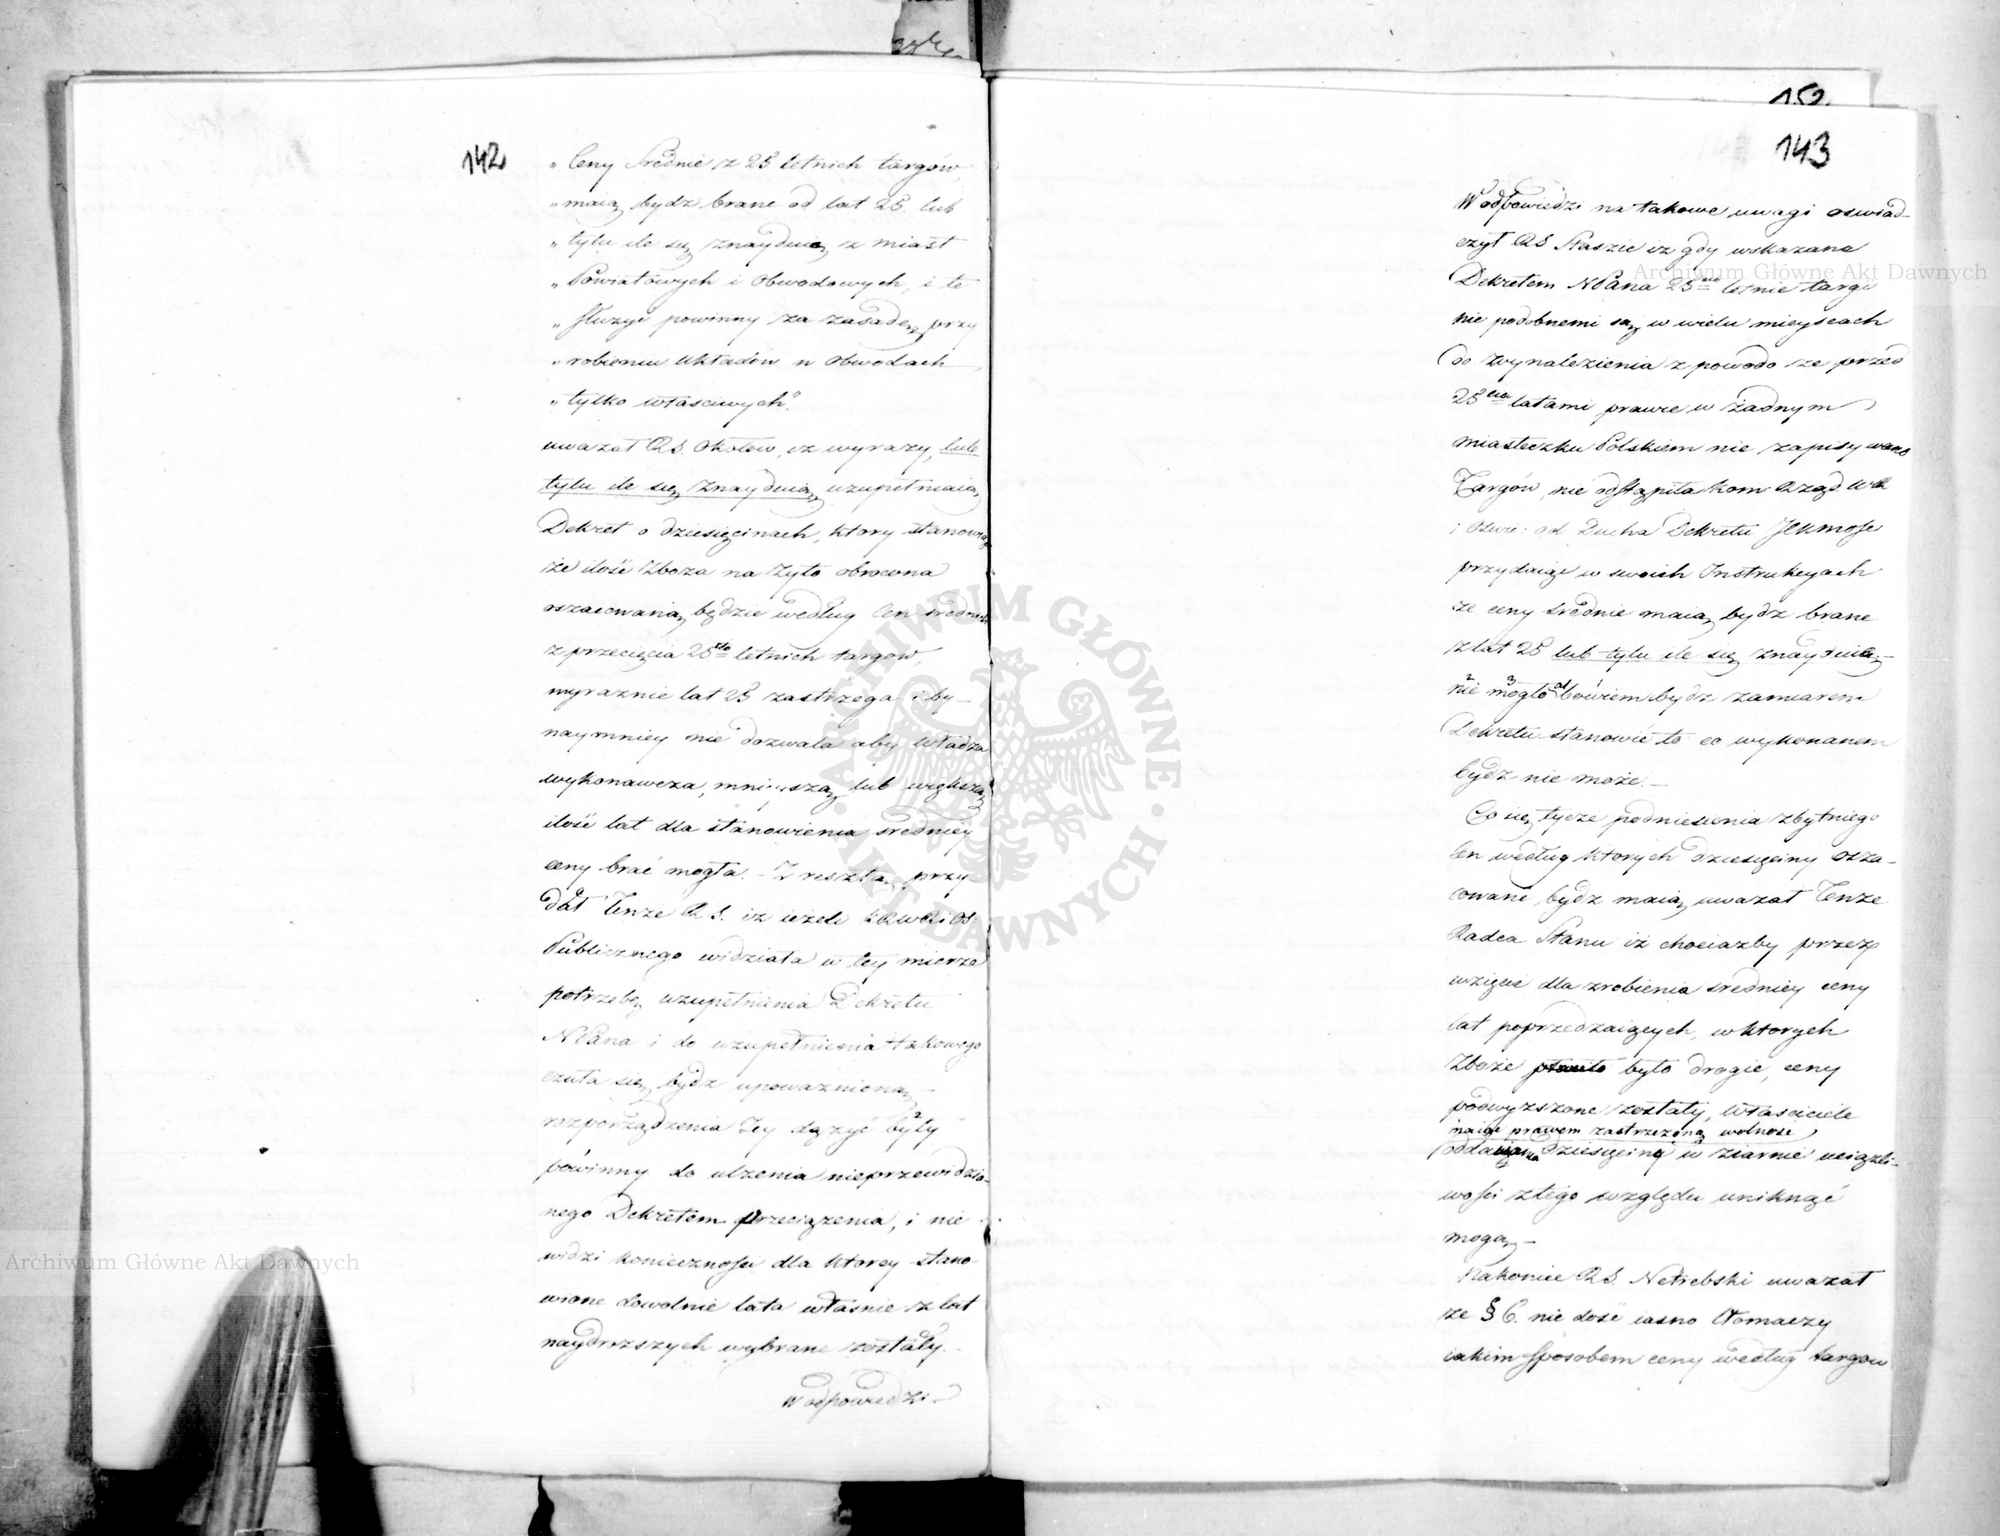 142
„Ceny Srednie z 25 letnich targów
„maią bydz brane od lat 25. lub
„tylu ile się znayduią z miast
„Powiatowych i Obwodowych, i te
„służyć powinny za zasadę przy
„robieniu układów w Obwodach
„tylko właściwych”.
uważał RS. Okołow, iz wyrazy, lub
tylu ile się znayduią uzupełniaią
Dekret o dziesięcinach, ktory stanowiąc
że ilość zboża na żyto obrocona
oszacowaną będzie według Cen srednich
z przecięcia 25cio letnich targow,
wyraznie lat 25 zastrzega i by-
naymniey nie dozwala aby władza
wykonawcza, mnieyszą lub większą
ilość lat dla stanowienia sredniey
ceny brać mogła. - Z resztą przy-
dał Tenże RS. iz ieżeli KRWRiOś
Publicznego widziała w tey mierze
potrzebę uzupełnienia Dekretu
NPana i do uzupełnienia takowego
czuła się bydz upoważnioną -
rozporządzenia Jey dążyć były
powinny do ulżenia nieprzewidzia-
nego Dekretem przeciążenia, i nie
widzi konieczności dla ktorey stano-
wione dowolnie lata właśnie z lat
naydroższych wybrane zostały.
W odpowiedzi -
152.
143
W odpowiedzi na takowe uwagi oswiad-
czył RS Staszic iz gdy wskazane
Dekretem NPana 25cio letnie targi
nie podobnemi są w wielu mieyscach
do wynalezienia z powodo że przed
25cia latami prawie w żadnym
miasteczku Polskiem nie zapisywano
Targów, nie odstąpiła Kom Rząd. WR
i Oswe: od Ducha Dekretu JKMości
przydaiąc w swoich Instrukcyach
że ceny srednie maią bydz brane
z lat 25 lub tylu ile się znayduią -
nie mogło bowiem bydz zamiarem
Dekretu stanowić to co wykonanem
bydz nie może. -
Co się tycze podniesienia zbytniego
Cen według ktorych dziesięciny osza-
cowane bydz maią uważał Tenże
Radca Stanu iż chociażby przez
wzięcie dla zrobienia sredniey ceny
lat poprzedzaiących, w ktorych
zboże było drogie, ceny
podwyższone zostały, właściciele
maiąc prawem zastrzeżoną wolność
oddawania Dziesięciny w ziarnie uciążli-
wości z tego względu uniknąć
mogą -
Nakoniec RS. Netrebski uważał
że § 6. nie dość iasno tłomaczy
iakim sposobem ceny według targow
Archiwum Główne Akt Dawnych
Archiwum Główne Akt Dawnych
ARCHIWUM GŁÓWNE · AKT DAWNYCH ·